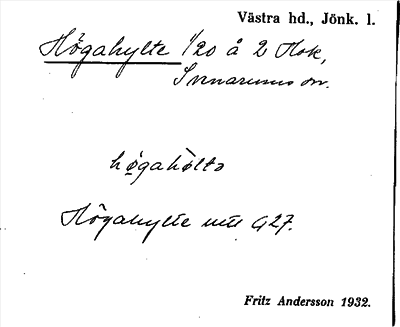 Västra hd., Jönk. l.
Högahylte 1/20 å 2 Hok,
Svenarums sn.
högahòlta
Högahylte
Fritz Andersson 1932.